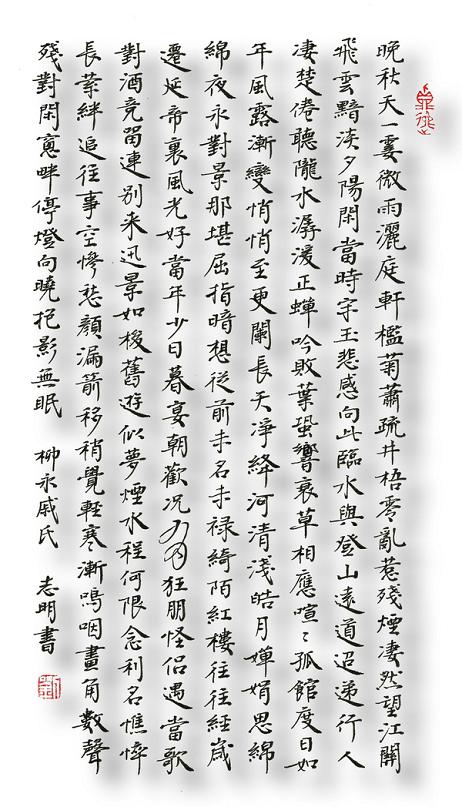 晚秋天一霎微雨灑庭軒檻菊蕭疏井梧零亂惹殘煙凄然望江關
飛雲黯淡夕陽閑當時宋玉悲感向此臨水與登山遠道迢遞行人
凄楚倦聽隴水潺湲正蟬吟敗葉蛩響衰草相應喧々孤館度日如
年風露漸變悄悄至更闌長天凈絳河清淺皓月嬋娟思綿
綿夜永對景那堪屈指暗想從前未名未祿綺陌紅樓往往經歲
遷延帝裏風光好當年少日暮宴朝歡況有狂朋怪侶遇當歌
對酒竞留連別來迅景如梭舊遊似夢煙水程何限念利名憔悴
長縈絆追往事空慘愁顏漏箭移稍覺輕寒漸嗚咽畫角數聲
殘對閑窗畔停燈向曉抱影無眠 柳永戚氏 志明書